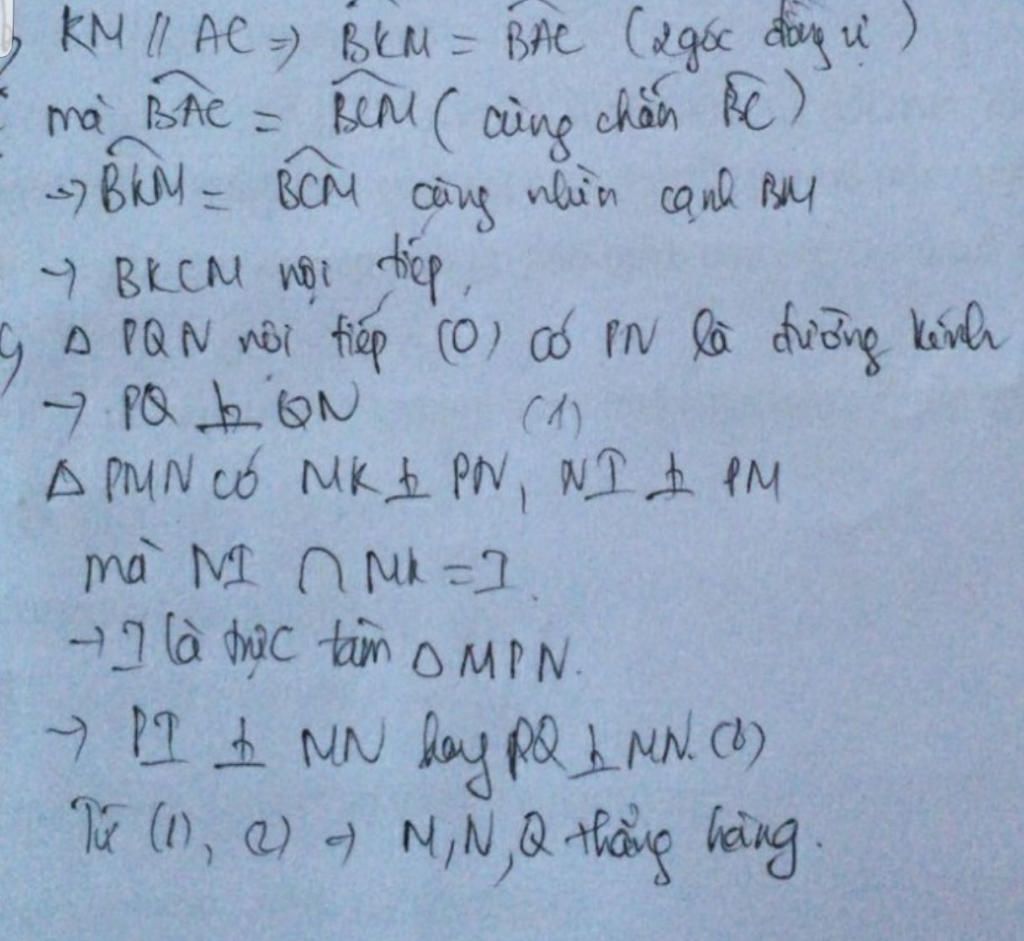 KM // AC => BKM = BAC (2 góc đồng vị)
mà BAC = BCM (cùng chắn BC)
-> BKM = BCM cùng nhìn cạnh BM
-> BKCM nội tiếp.
Δ PQN nội tiếp (O) có PN là đường kính
-> PQ ⊥ QN (1)
Δ PMN có MK ⊥ PN, NI ⊥ PM
mà NI ∩ MK = J
-> J là trực tâm Δ MPN.
-> PI ⊥ MN hay PQ ⊥ MN. (2)
Từ (1), (2) -> M, N, Q thẳng hàng.